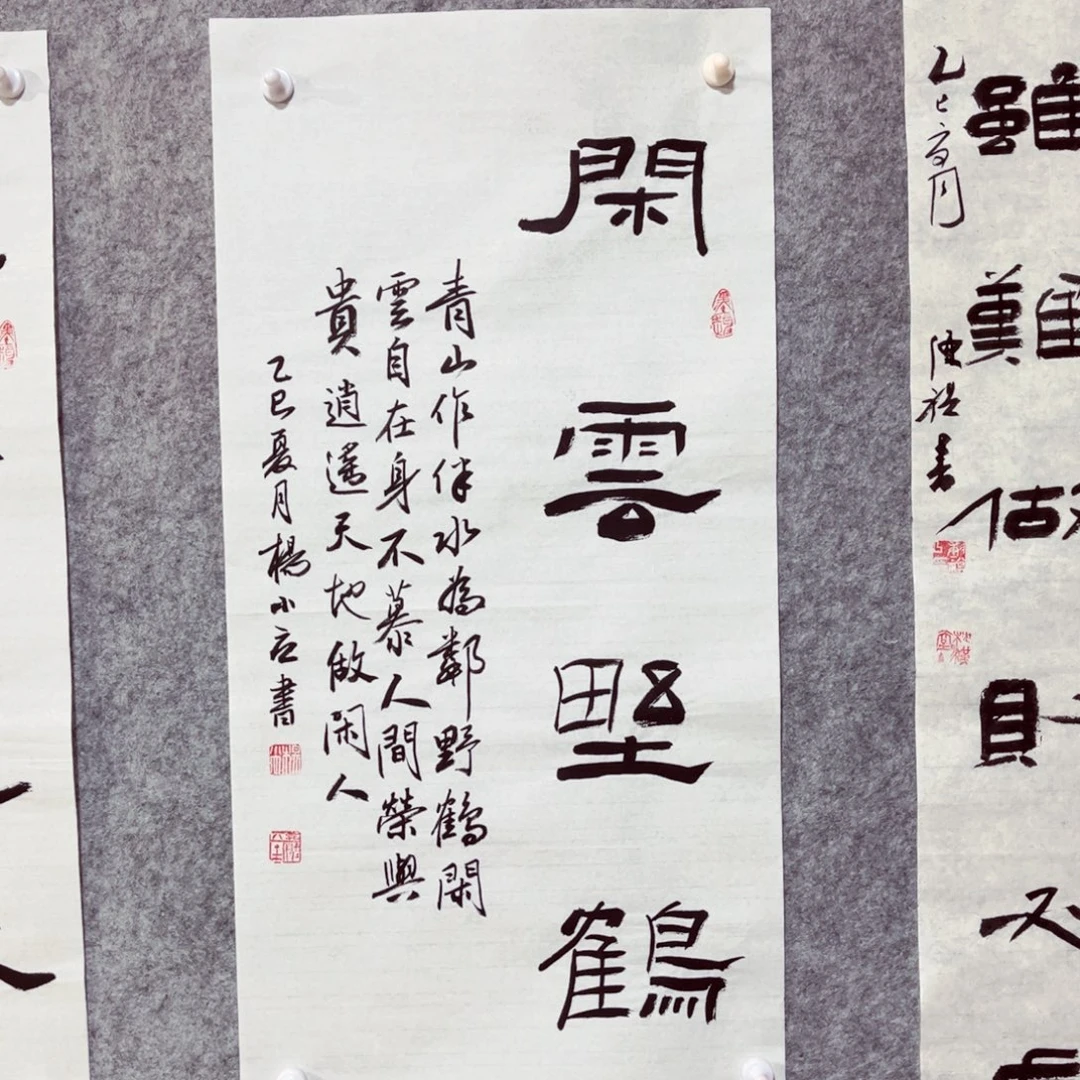 閑雲野鶴
青山作伴水為鄰野鶴閑
雲自在身不慕人間榮與
貴逍遙天地做閑人
乙巳夏月楊小立書
雖難
乙巳夏月
書